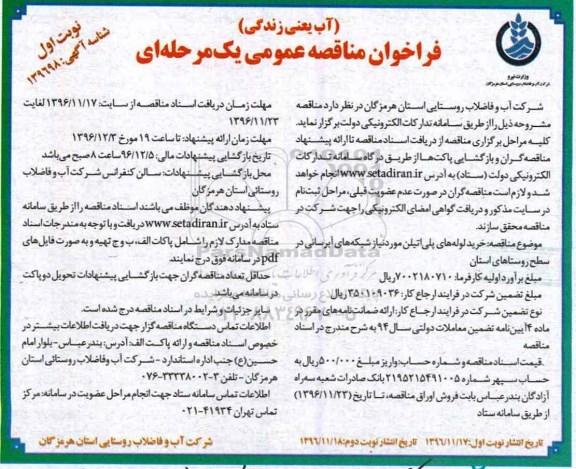 نوبت اول
شناسه آگهی: ۱۳۹۶۹۸
(آب یعنی زندگی)
فراخوان مناقصه عمومی یک مرحله‌ای
وزارت نیرو
شرکت آب و فاضلاب روستایی استان هرمزگان در نظر دارد مناقصه
مشروحه ذیل را از طریق سامانه تدارکات الکترونیکی دولت برگزار نماید.
کلیه مراحل برگزاری مناقصه از دریافت اسناد مناقصه تا ارائه پیشنهاد
مناقصه‌گران و بازگشایی پاکت‌ها از طریق درگاه سامانه تدارکات
الکترونیکی دولت (ستاد) به آدرس www.setadiran.ir انجام خواهد
شد و لازم است مناقصه‌گران در صورت عدم عضویت قبلی، مراحل ثبت‌نام
در سایت مذکور و دریافت گواهی امضای الکترونیکی را جهت شرکت در
مناقصه محقق سازند.
موضوع مناقصه: خرید لوله‌های پلی‌اتیلن مورد نیاز شبکه‌های آبرسانی در
سطح روستاهای استان
مبلغ برآورد اولیه کارفرما: ۷۰۰۲۱۸۰۷۱۰ ریال
مبلغ تضمین شرکت در فرایند ارجاع کار: ۳۵۰۱۰۹۰۳۶ ریال
نوع تضمین شرکت در فرایند ارجاع کار: ارائه ضمانت‌نامه‌های مقرر در
ماده ۴ آیین‌نامه تضمین معاملات دولتی سال ۹۴ به شرح مندرج در اسناد
مناقصه
قیمت اسناد مناقصه و شماره حساب: واریز مبلغ ۵۰۰/۰۰۰ ریال به
حساب سپهر شماره ۲۱۹۵۲۱۵۴۹۱۰۰۵ بانک صادرات شعبه سه‌راه
آزادگان بندرعباس بابت فروش اوراق مناقصه، تا تاریخ (۱۳۹۶/۱۱/۲۳)
از طریق سامانه ستاد
مهلت زمان دریافت اسناد مناقصه از سایت: ۱۳۹۶/۱۱/۱۷ لغایت
۱۳۹۶/۱۱/۲۳
مهلت زمان ارائه پیشنهاد: تا ساعت ۱۹ مورخ ۱۳۹۶/۱۲/۳
تاریخ بازگشایی پیشنهادات مالی: ۹۶/۱۲/۵ ساعت ۸ صبح می‌باشد
محل بازگشایی پیشنهادات: سالن کنفرانس شرکت آب و فاضلاب
روستائی استان هرمزگان
پیشنهاد دهندگان موظف می‌باشند اسناد مناقصه را از طریق سامانه
ستاد به آدرس www.setadiran.ir دریافت و با توجه به مندرجات اسناد
مناقصه مدارک لازم را شامل پاکات الف، ب و ج تهیه و به صورت فایل‌های
pdf در سامانه فوق درج نمایند.
حداقل تعداد مناقصه‌گران جهت بازگشایی پیشنهادات تحویل دو پاکت
در سامانه می‌باشد
سایر جزئیات و شرایط در اسناد مناقصه درج شده است.
اطلاعات تماس دستگاه مناقصه گزار جهت دریافت اطلاعات بیشتر در
خصوص اسناد مناقصه و ارائه پاکت الف: آدرس: بندرعباس - بلوار امام
حسین(ع) جنب اداره استاندارد - شرکت آب و فاضلاب روستائی استان
هرمزگان - تلفن ۳-۳۳۳۳۸۰۰۲-۰۷۶
اطلاعات تماس سامانه ستاد جهت انجام مراحل عضویت در سامانه: مرکز
تماس تهران ۴۱۹۳۴-۰۲۱
تاریخ انتشار نوبت اول: ۱۳۹۶/۱۱/۱۷ تاریخ انتشار نوبت دوم: ۱۳۹۶/۱۱/۱۸
شرکت آب و فاضلاب روستایی استان هرمزگان
ParaNamadData